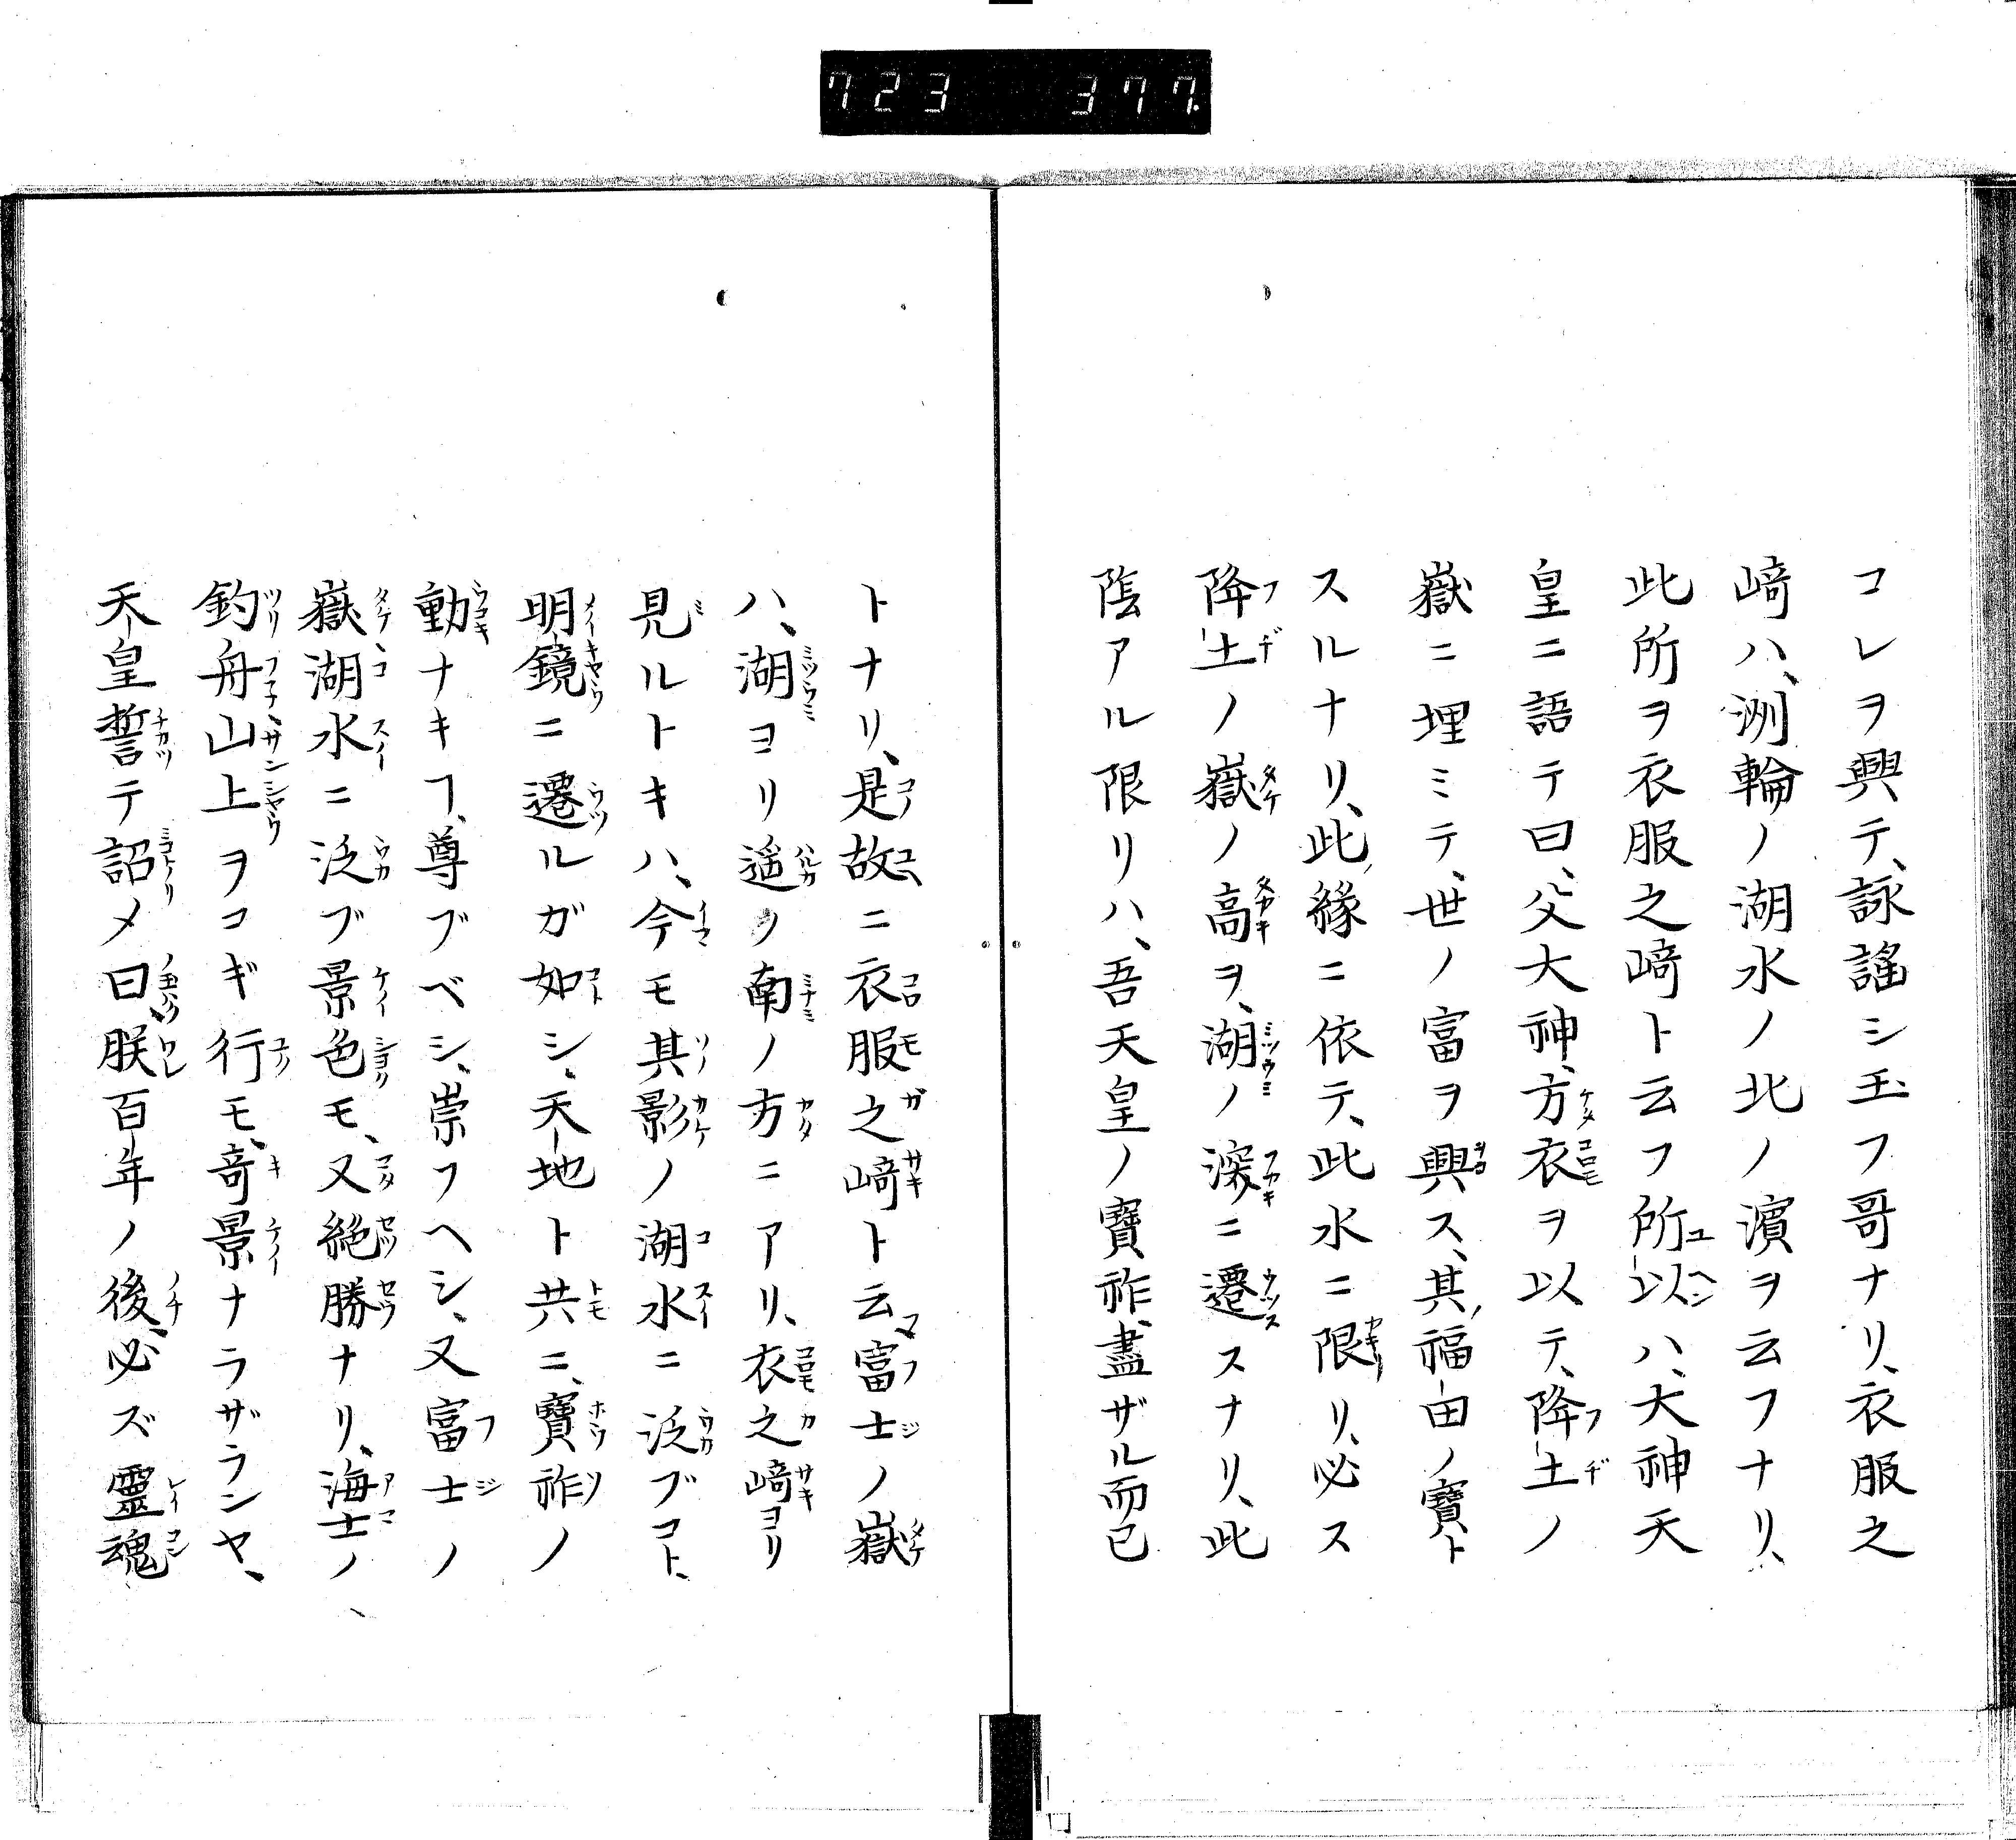 723 377
コレヲ興テ、詠謡シ玉フ哥ナリ、衣服之
﨑ハ、洌輪ノ湖水ノ北ノ濱ヲ云フナリ、
此所ヲ衣服之﨑ト云フ所以ハ、大神天
皇ニ語テ曰、父大神、方衣ヲ以テ、降土ノ
嶽ニ埋ミテ、世ノ富ヲ興ス、其福由ノ寶ト
スルナリ、此縁ニ依テ、此水ニ限リ、必ス
降土ノ嶽ノ高ヲ、湖ノ深ニ遷スナリ、此
蔭アル限リハ、吾天皇ノ寶祚、盡ザル而已
トナリ、是故ニ衣服之﨑ト云、富士ノ嶽
ハ、湖ヨリ遥ノ南ノ方ニアリ、衣之﨑ヨリ
見ルトキハ、今モ其影ノ湖水ニ泛ブコト、
明鏡ニ遷ルガ如シ、天地ト共ニ、寶祚ノ
動ナキヿ、尊ブベシ、崇フヘシ、又富士ノ
嶽、湖水ニ泛ブ景色モ、又絶勝ナリ、海士ノ
釣舟、山上ヲコギ行モ、竒景ナラザランヤ、
天皇誓テ詔メ曰、朕百年ノ後、必ズ靈魂